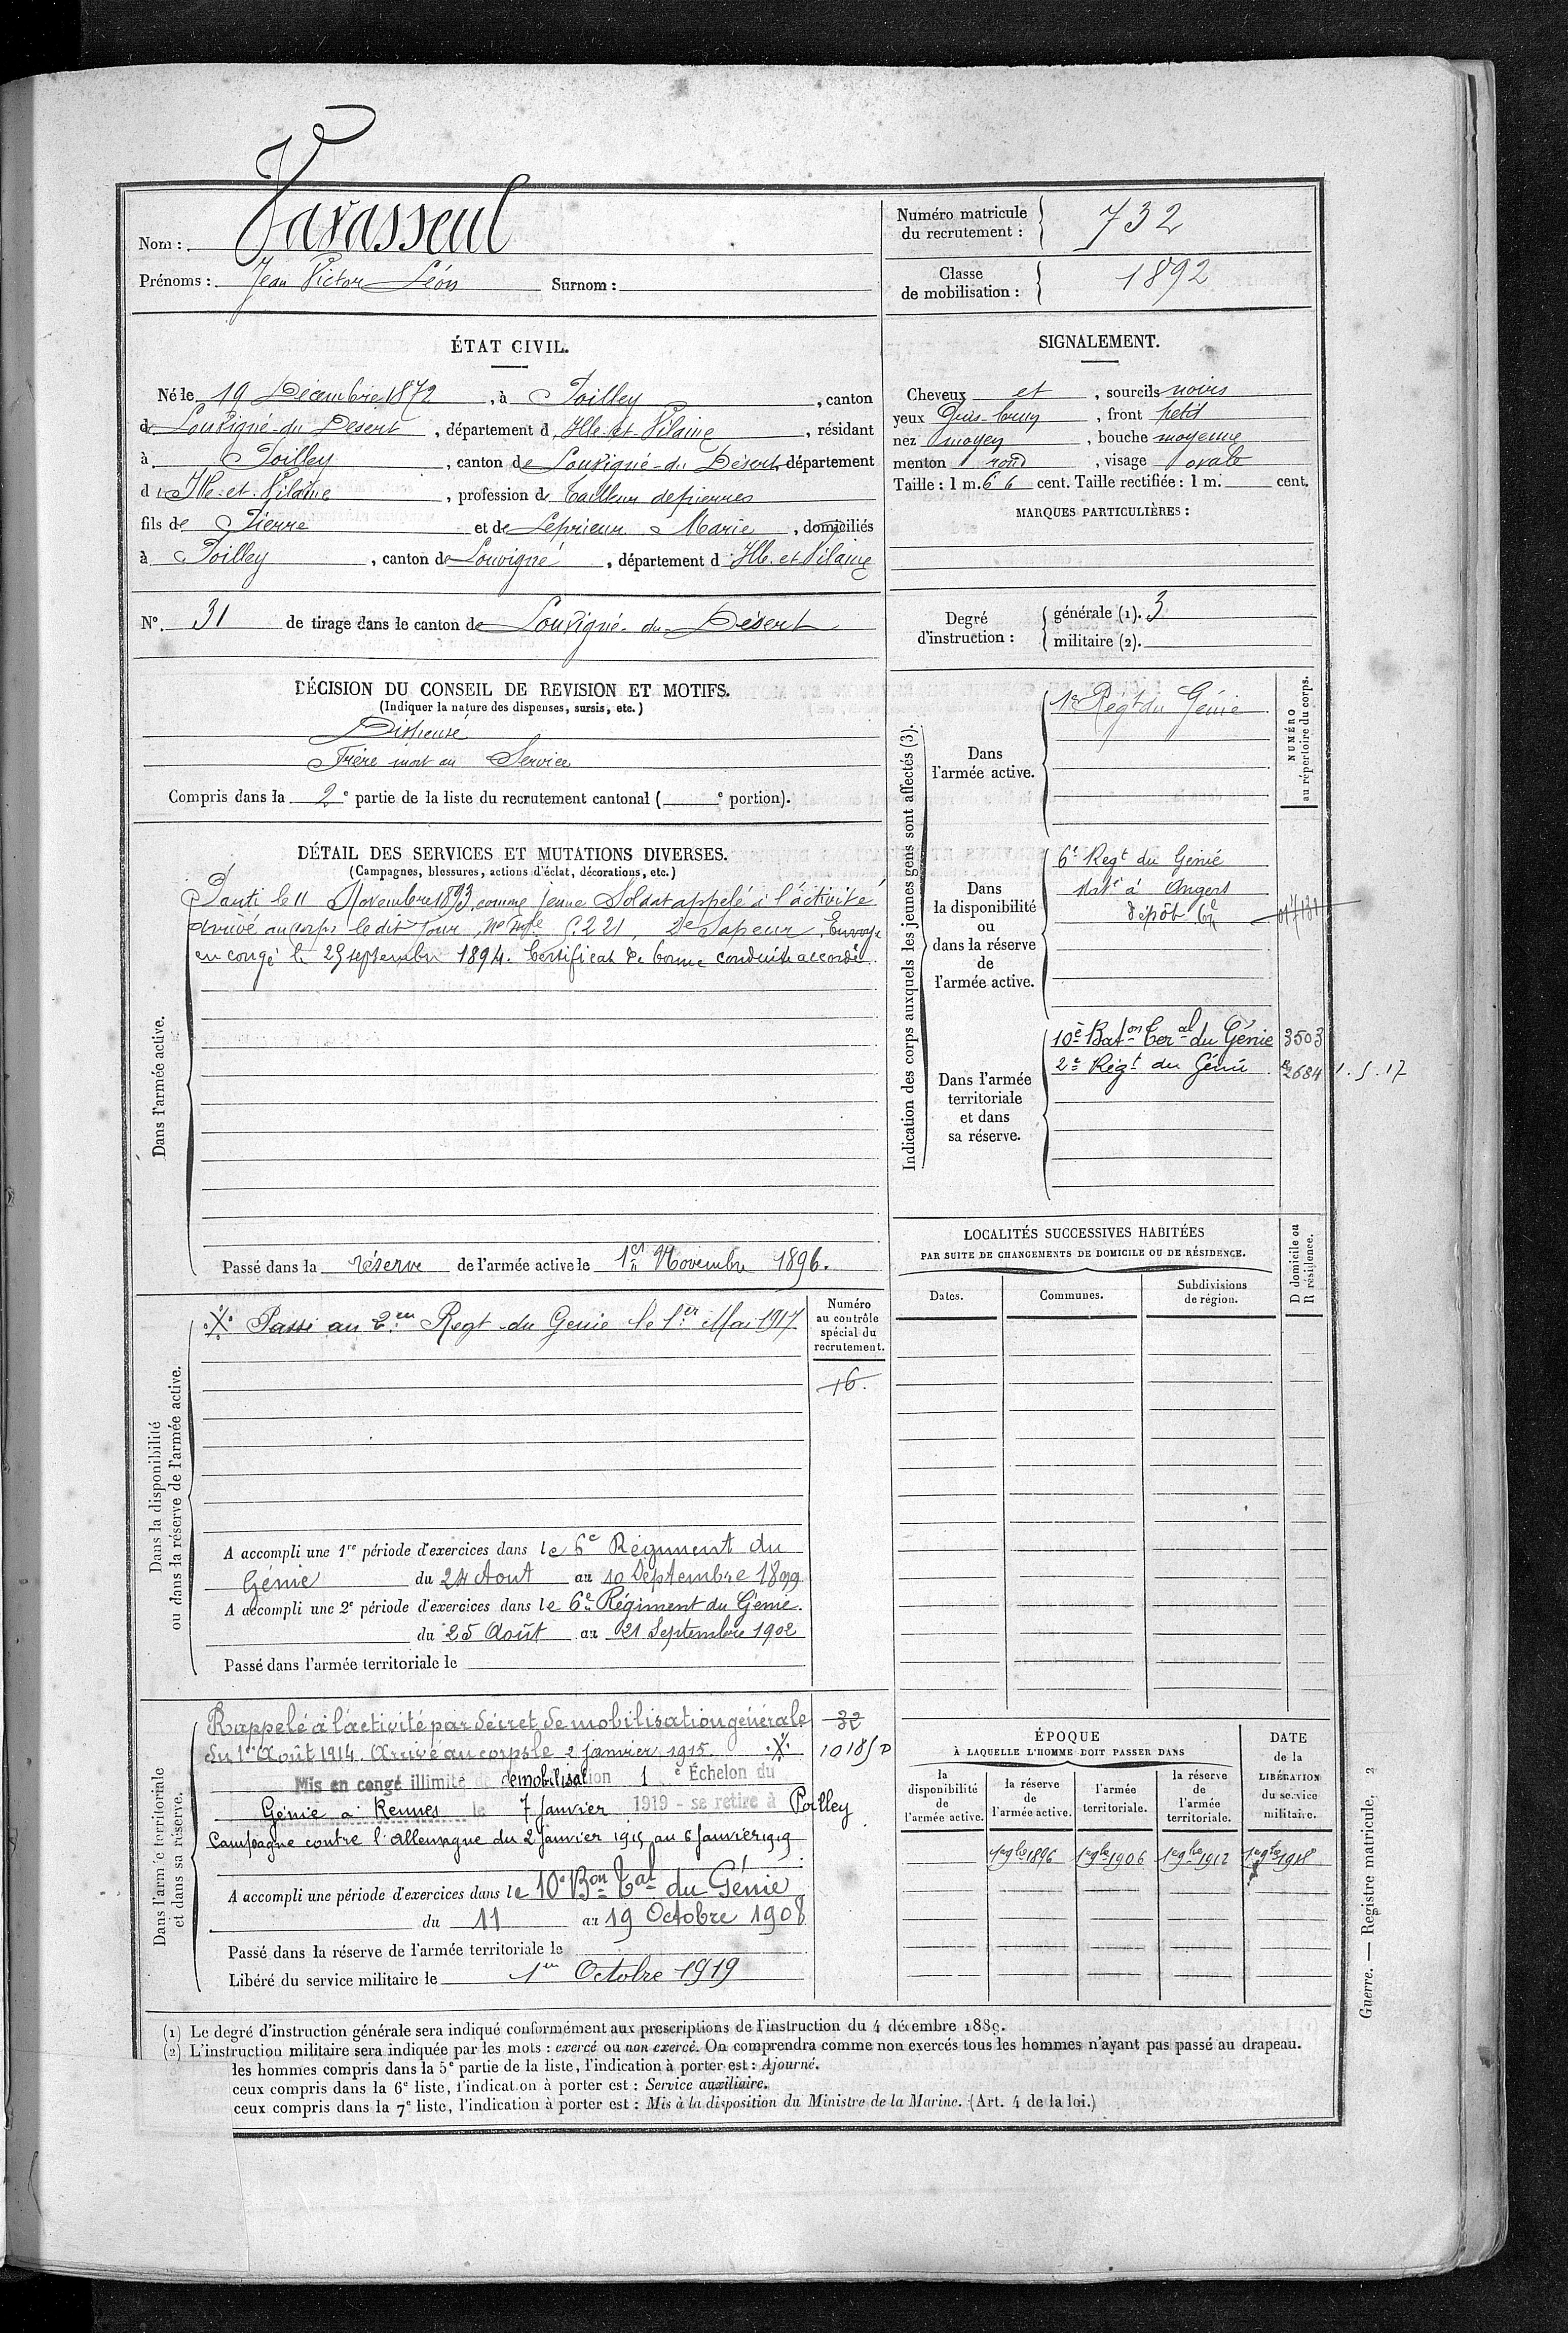 Nom : Vavasseul
Prénoms : Jean Victor Léon Surnom :
Numéro matricule du recrutement : 732
Classe de mobilisation : 1892
ÉTAT CIVIL.
Né le 19 Décembre 1872, à Poilley, canton
de Louvigné-du-Désert, département d'Ille-et-Vilaine, résidant
à Poilley, canton de Louvigné-du-Désert, département
d'Ille-et-Vilaine, profession de tailleur de pierres
fils de Pierre et de Leprieur Marie, domiciliés
à Poilley, canton de Louvigné, département d'Ille et Vilaine
N° 31 de tirage dans le canton de Louvigné-du-Désert
SIGNALEMENT.
Cheveux et, sourcils noirs
yeux Gris-brun, front petit
nez moyen, bouche moyenne
menton rond, visage ovale
Taille : 1 m. 66 cent. Taille rectifiée : 1 m. cent.
MARQUES PARTICULIÈRES :
Degré d'instruction :
générale (1). 3
militaire (2).
DÉCISION DU CONSEIL DE REVISION ET MOTIFS.
(Indiquer la nature des dispenses, sursis, etc.)
Dispensé
Frère mort au Service
Compris dans la 2e partie de la liste du recrutement cantonal ( e portion).
DÉTAIL DES SERVICES ET MUTATIONS DIVERSES.
(Campagnes, blessures, actions d'éclat, décorations, etc.)
Dans l'armée active.
Parti le 11 Novembre 1893, comme jeune Soldat appelé à l'activité
arrivé au corps le dit jour, No Mle 6221, 2e Sapeur. Envoyé
en congé le 25 septembre 1894. Certificat de bonne conduite accordé.
Passé dans la réserve de l'armée active le 1er Novembre 1896.
Indication des corps auxquels les jeunes gens sont affectés (3).
NUMÉRO au répertoire du corps.
Dans l'armée active.
1er Régt du Génie
Dans la disponibilité ou dans la réserve de l'armée active.
6e Regt du Génie
à Angers
dépôt
Dans l'armée territoriale et dans sa réserve.
10e Baton Teral du Génie 3503
2e Régt du Génie 2684 1.5.17
LOCALITÉS SUCCESSIVES HABITÉES
PAR SUITE DE CHANGEMENTS DE DOMICILE OU DE RÉSIDENCE.
Dates. Communes. Subdivisions de région. D domicile ou R résidence.
Dans la disponibilité ou dans la réserve de l'armée active.
.X. Passé au 2em Regt du Genie le 1er Mai 1917
Numéro au contrôle spécial du recrutement.
16.
A accompli une 1re période d'exercices dans le 6e Régiment du
Génie du 24 Aout au 10 Septembre 1899
A accompli une 2e période d'exercices dans le 6e Régiment du Génie.
du 25 Août au 21 Septembre 1902
Passé dans l'armée territoriale le
Dans l'armée territoriale et dans sa réserve.
Rappelé à l'activité par décret de mobilisation générale 32
du 1er Août 1914. Arrivé au corps le 2 janvier 1915. .X. 10185 D
Mis en congé illimité de démobilisation 1e Échelon du
Génie à Rennes le 7 Janvier 1919 - se retire à Poilley
Campagne contre l'Allemagne du 2 janvier 1915 au 6 janvier 1919
A accompli une période d'exercices dans le 10e Bon Tal du Génie
du 11 au 19 Octobre 1908
Passé dans la réserve de l'armée territoriale le
Libéré du service militaire le 1er Octobre 1919
ÉPOQUE
À LAQUELLE L'HOMME DOIT PASSER DANS
la disponibilité de l'armée active. la réserve de l'armée active. l'armée territoriale. la réserve de l'armée territoriale.
DATE de la LIBÉRATION du service militaire.
1er 9bre 1896 1er 9bre 1906 1er 9bre 1912 1er 9bre 1918
(1) Le degré d'instruction générale sera indiqué conformément aux prescriptions de l'instruction du 4 décembre 1889.
(2) L'instruction militaire sera indiquée par les mots : exercé ou non exercé. On comprendra comme non exercés tous les hommes n'ayant pas passé au drapeau.
les hommes compris dans la 5e partie de la liste, l'indication à porter est : Ajourné.
ceux compris dans la 6e liste, l'indication à porter est : Service auxiliaire.
ceux compris dans la 7e liste, l'indication à porter est : Mis à la disposition du Ministre de la Marine. (Art. 4 de la loi.)
Guerre. — Registre matricule. 2